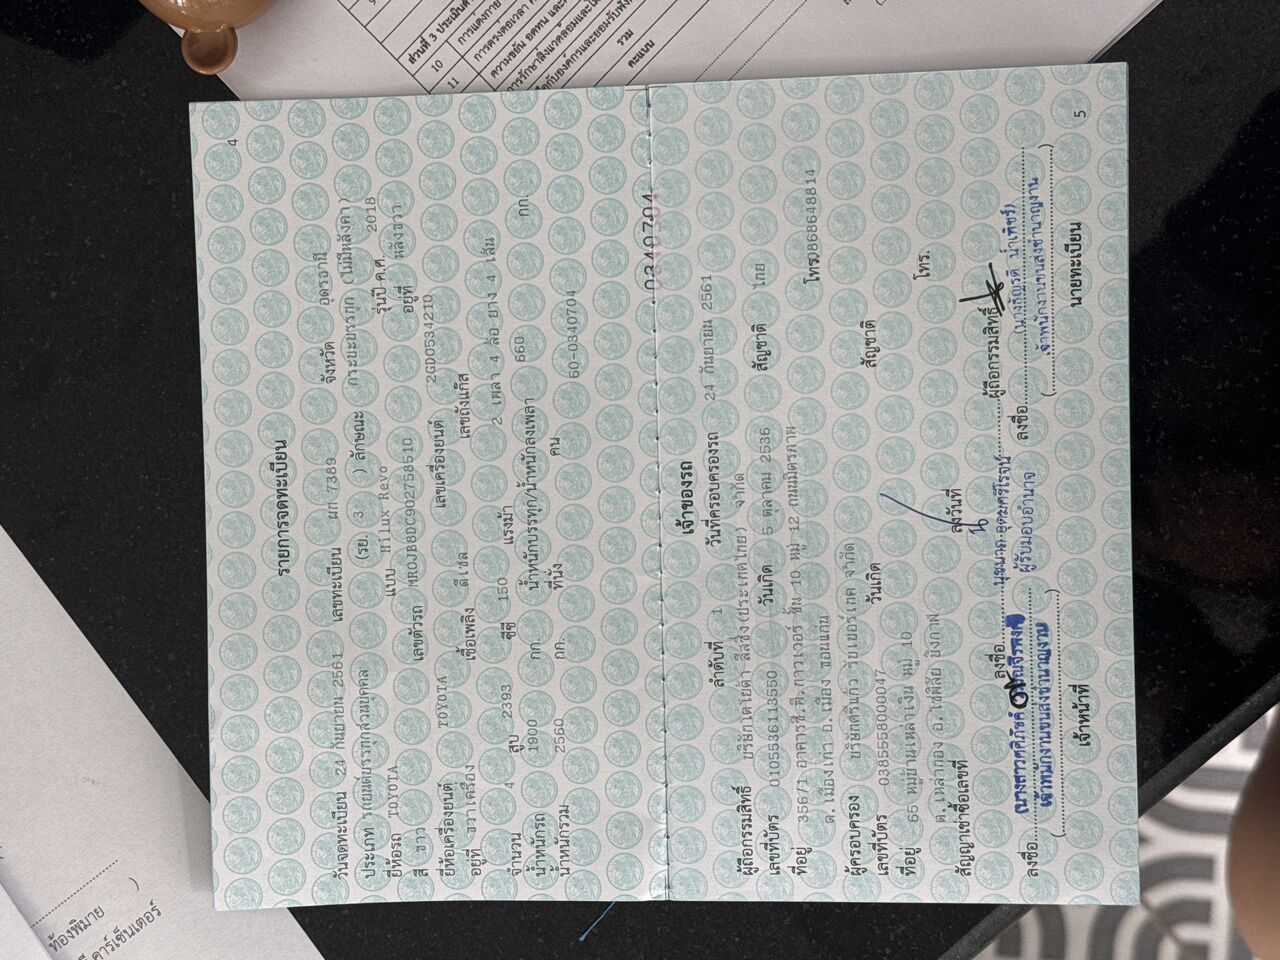 4
รายการจดทะเบียน
วันจดทะเบียน 24 กันยายน 2561 เลขทะเบียน ผก 7389 จังหวัด อุดรธานี
ประเภท รถยนต์บรรทุกส่วนบุคคล (รย. 3 ) ลักษณะ กระบะบรรทุก (ไม่มีหลังคา)
ยี่ห้อรถ TOYOTA แบบ Hilux Revo รุ่นปี ค.ศ. 2018
สี ขาว เลขตัวรถ MR0JB8DC902758510 อยู่ที่ หลังขวา
ยี่ห้อเครื่องยนต์ TOYOTA เลขเครื่องยนต์ 2GD0534210
อยู่ที่ ขวาเครื่อง เชื้อเพลิง ดีเซล เลขถังแก๊ส
จำนวน 4 สูบ 2393 ซีซี 150 แรงม้า 2 เพลา 4 ล้อ ยาง 4 เส้น
น้ำหนักรถ 1900 กก. น้ำหนักบรรทุก/น้ำหนักลงเพลา 660 กก.
น้ำหนักรวม 2560 กก. ที่นั่ง คน 60-0340704
0340704
เจ้าของรถ
ลำดับที่ 1 วันที่ครอบครองรถ 24 กันยายน 2561
ผู้ถือกรรมสิทธิ์ บริษัทโตโยต้า ลีสซิ่ง(ประเทศไทย) จำกัด
เลขที่บัตร 0105536113550 วันเกิด 5 ตุลาคม 2536 สัญชาติ ไทย
ที่อยู่ 356/1 อาคารซี.พี.ทาวเวอร์ ชั้น 10 หมู่ 12 ถนนมิตรภาพ
ต.เมืองเก่า อ.เมือง ขอนแก่น โทร.0868648814
ผู้ครอบครอง
เลขที่บัตร 0385558000047 วันเกิด สัญชาติ
ที่อยู่ 65 หมู่ 10
ต.เหล่าทอง อ.โซ่พิสัย บึงกาฬ โทร.
สัญญาเช่าซื้อเลขที่ ลงวันที่
ลงชื่อ ผู้ถือกรรมสิทธิ์
ผู้รับมอบอำนาจ
ลงชื่อ ลงชื่อ
เจ้าพนักงานขนส่งชำนาญงาน เจ้าพนักงานขนส่งชำนาญงาน
เจ้าหน้าที่ นายทะเบียน
5
ส่วนที่ 3
10
11
รวม
คะแนน
ท้องพิมาย
คาร์เซ็นเตอร์